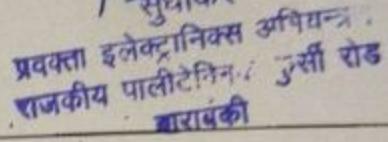 प्रवक्ता इलेक्ट्रानिक्स अभियन्त्र.
राजकीय पालीटेक्निक कुर्सी रोड
बाराबंकी